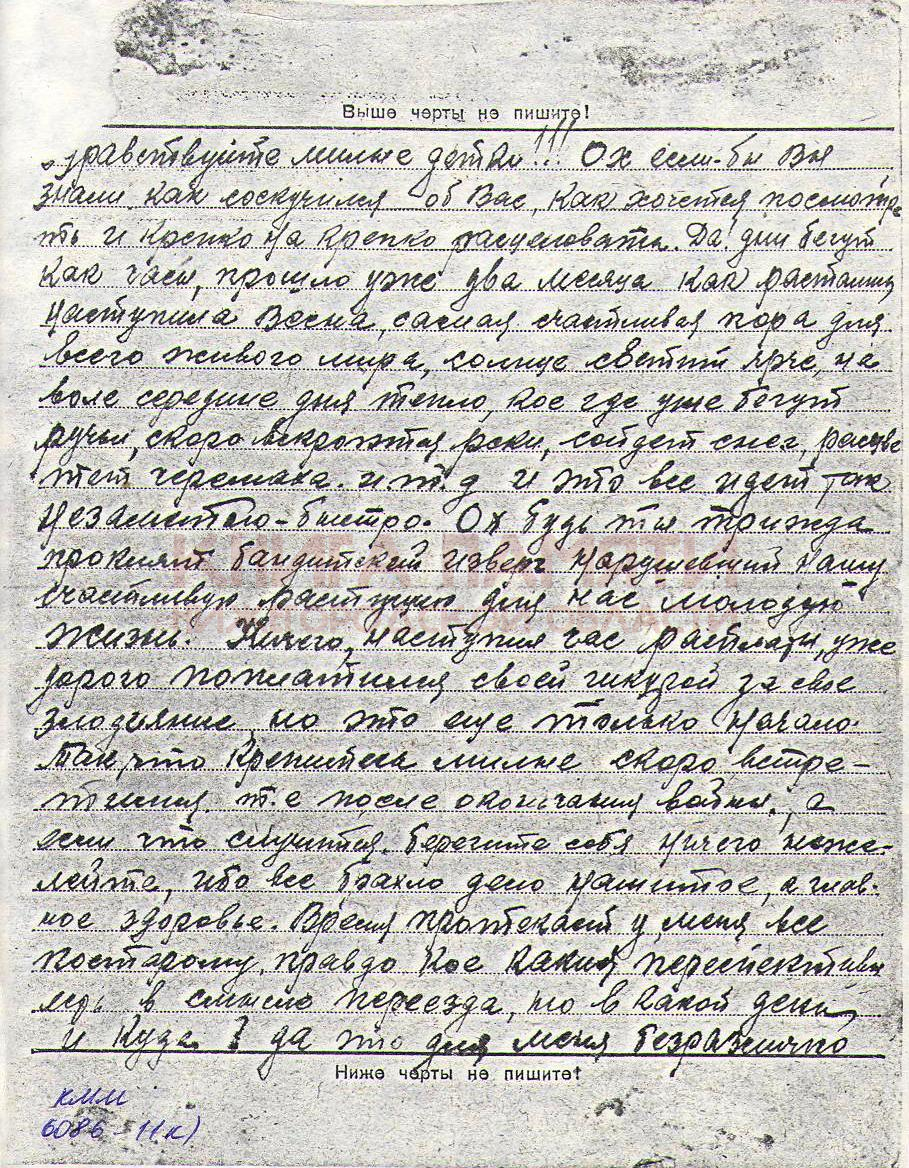 Выше черты не пишите!
здравствуйте милые детки!!! Ох если-бы Вы
знали как соскучился об Вас, как хочется посмотре
ть и крепко на крепко расцеловать. Да, дни бегут
как часы, прошло уже два месяца как растались
наступила Весна, самая счастливая пора для
всего живого мира, солнце светит ярче, на
воле середине дня тепло, кое где уже бегут
ручьи, скоро вскроются реки, сойдет снег, расцве
тет черемаха. и.т.д и это все идет так
незаметно-быстро. Ох будь ты трижда
проклят бандитский изверг нарушевший нашу
счастливую растущию для нас молодую
жизнь. Ничего, наступил час расплаты, уже
дорого поплатился своей шкурой за свое
злодъяние, но это еще только начало.
Так, что крепитесь милые скоро встре-
тимся т.е после окончания войны, а
если что случится. берегите себя ничего нежа-
лейте, ибо все брахло дело нажитое, а глав-
ное здоровье. Время протекает у меня все
постарому, правдо кое какия переспективы
есть в смысле переезда, но в какой день
и куда ? да это для меня безразлично
Ниже черты не пишите!
КНИГА ПАМЯТИ
НИЖЕГОРОДСКОЙ ОБЛАСТИ
КММ
6086-11(к)